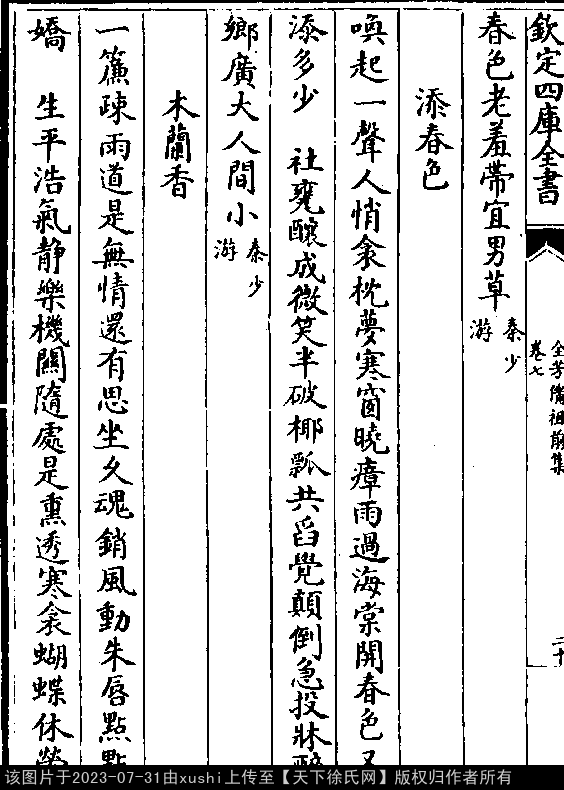 欽定四庫全書
全芳備祖前集
卷七
二十
春色老羞帶宜男草
秦少游
添春色
喚起一聲人悄衾枕夢寒窗曉瘴雨過海棠開春色又
添多少　社甕釀成微笑半破椰瓢共舀覺顛倒急投牀醉
鄉廣大人間小
秦少游
木蘭香
一簾疎雨道是無情還有思坐久魂銷風動朱唇點點
嬌　生平浩氣静樂機關隨處是熏透寒衾蝴蝶休縈
该图片于2023-07-31由xushi上传至【天下徐氏网】版权归作者所有